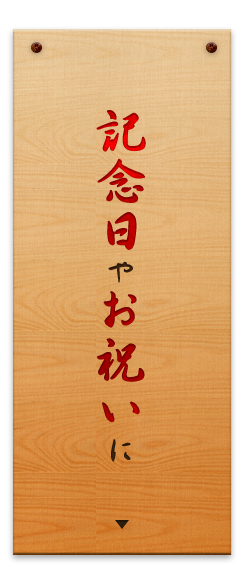 記念日やお祝いに